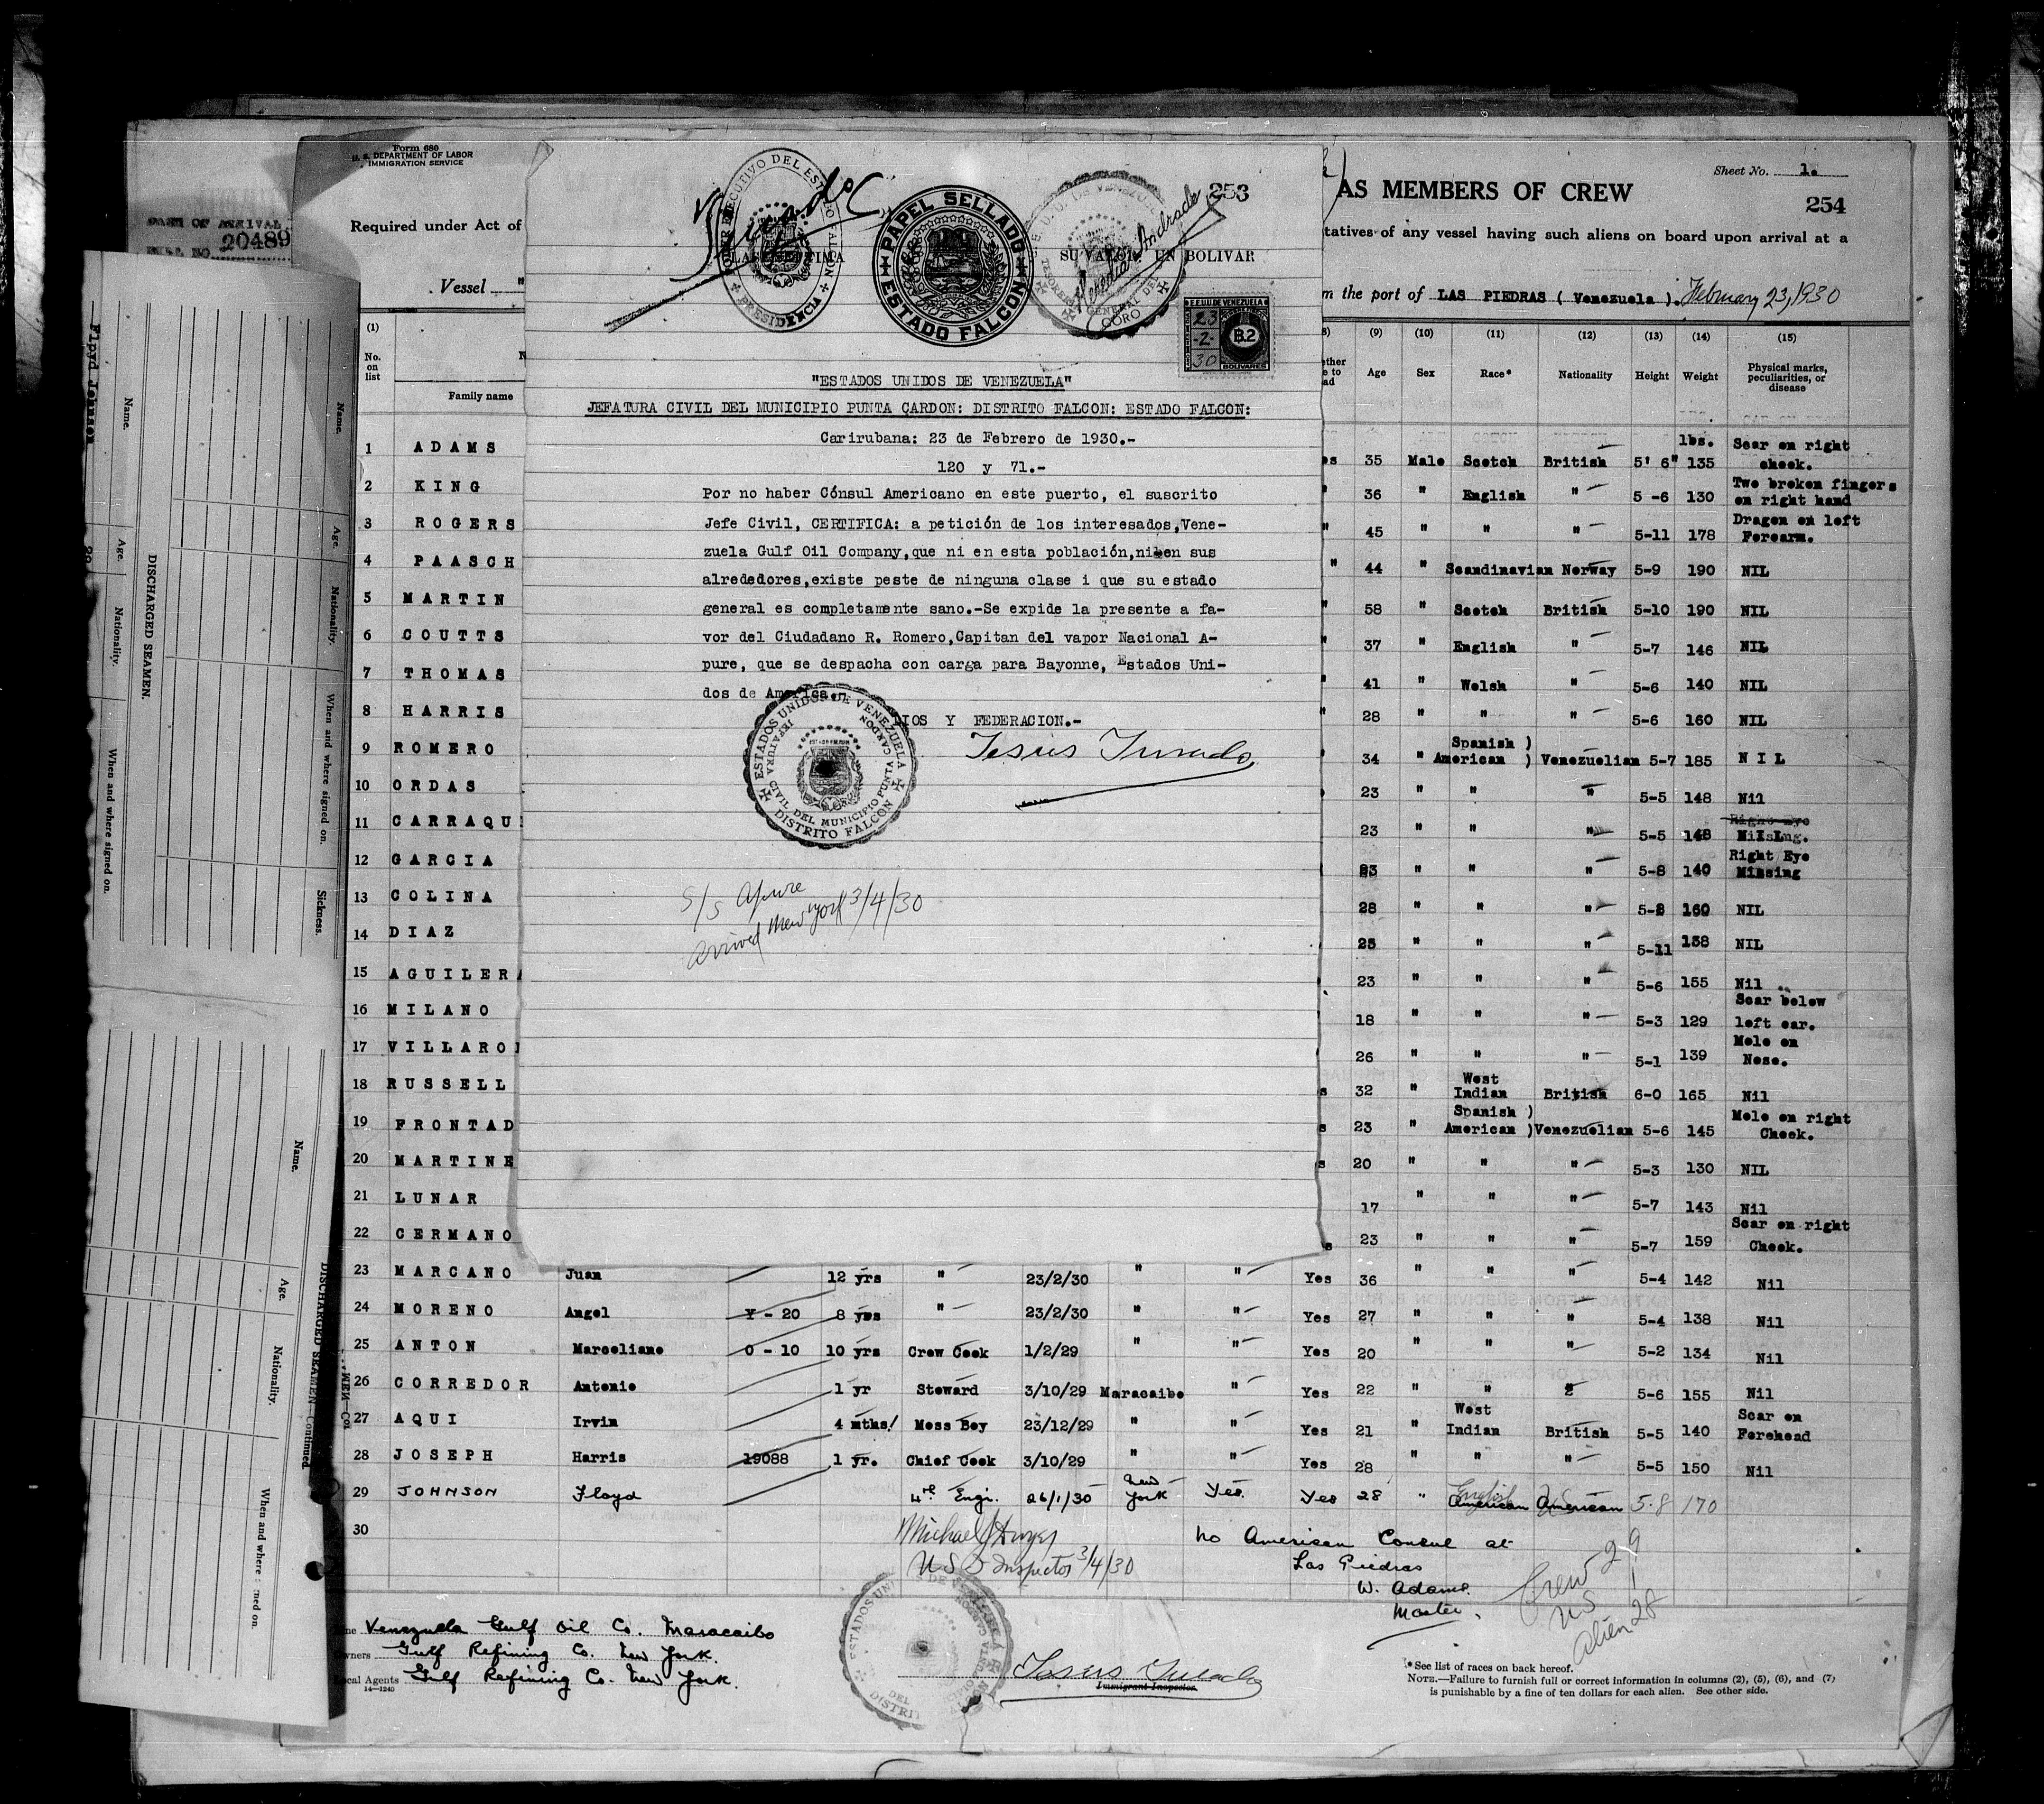 Form 680
U. S. DEPARTMENT OF LABOR
IMMIGRATION SERVICE
Required under Act of
Vessel "
PORT OF ARRIVAL
20489
253
PAPEL SELLADO
ESTADO FALCON
PRESIDENCIA
CORO
SU VALOR: UN BOLIVAR
E.E.U.U. DE VENEZUELA
23
-2-
30
B.2
BOLIVARES
"ESTADOS UNIDOS DE VENEZUELA"
JEFATURA CIVIL DEL MUNICIPIO PUNTA CARDON: DISTRITO FALCON: ESTADO FALCON:
Carirubana: 23 de Febrero de 1930.-
120 y 71.-
Por no haber Cónsul Americano en este puerto, el suscrito
Jefe Civil, CERTIFICA: a petición de los interesados,Vene-
zuela Gulf Oil Company,que ni en esta población,ni en sus
alrededores,existe peste de ninguna clase i que su estado
general es completamente sano.-Se expide la presente a fa-
vor del Ciudadano R. Romero,Capitan del vapor Nacional A-
pure, que se despacha con carga para Bayonne, Estados Uni-
dos de America.-
DIOS Y FEDERACION.-
ESTADOS UNIDOS DE VENEZUELA
JEFATURA CIVIL DEL MUNICIPIO PUNTA CARDON
DISTRITO FALCON
S/S Apure
arrived New York 3/4/30
Sheet No. 1.
AS MEMBERS OF CREW
254
tatives of any vessel having such aliens on board upon arrival at a
m the port of LAS PIEDRAS ( Venezuela ). February 23, 1930
(1) (9) (10) (11) (12) (13) (14) (15)
No. on list Family name Age Sex Race* Nationality Height Weight Physical marks, peculiarities, or disease
1 ADAMS 35 Male Scotch British 5' 6" 135 lbs. Scar on right cheek.
2 KING 36 " English " 5-6 130 Two broken fingers on right hand
3 ROGERS 45 " " " 5-11 178 Dragon on left Forearm.
4 PAASCH 44 " Scandinavian Norway 5-9 190 NIL
5 MARTIN 58 " Scotch British 5-10 190 NIL
6 COUTTS 37 " English " 5-7 146 NIL
7 THOMAS 41 " Welsh " 5-6 140 NIL
8 HARRIS 28 " " " 5-6 160 NIL
9 ROMERO 34 " Spanish American ) Venezuelian 5-7 185 NIL
10 ORDAS 23 " " " 5-5 148 Nil
11 CARRAQU 23 " " " 5-5 148
12 GARCIA 23 " " " 5-8 140 Right Eye Missing
13 COLINA 28 " " " 5-8 160 NIL
14 DIAZ 25 " " " 5-11 158 NIL
15 AGUILERA 23 " " " 5-6 155 Nil
16 MILANO 18 " " " 5-3 129 Scar below left ear.
17 VILLARO 26 " " " 5-1 139 Mole on Nose.
18 RUSSELL 32 " West Indian British 6-0 165 Nil
19 FRONTAD 23 " Spanish American ) Venezuelian 5-6 145 Mole on right Cheek.
20 MARTINE 20 " " " 5-3 130 NIL
21 LUNAR 17 " " " 5-7 143 Nil
22 CERMANO 23 " " " 5-7 159 Scar on right Cheek.
23 MARCANO Juan 12 yrs " 23/2/30 " " Yes 36 " " " 5-4 142 Nil
24 MORENO Angel Y - 20 8 yrs " 23/2/30 " " Yes 27 " " " 5-4 138 Nil
25 ANTON Marceliano 0 - 10 10 yrs Crew Cook 1/2/29 " " Yes 20 " " " 5-2 134 Nil
26 CORREDOR Antonio 1 yr Steward 3/10/29 Maracaibo " Yes 22 " " " 5-6 155 Nil
27 AQUI Irvin 4 mths! Mess Boy 23/12/29 " " Yes 21 " West Indian British 5-5 140 Scar on Forehead
28 JOSEPH Harris 19088 1 yr. Chief Cook 3/10/29 " " Yes 28 " " " 5-5 150 Nil
29 JOHNSON Floyd 4th Engr. 26/1/30 New York Yes. Yes 28 " English American American 5-8 170
30
U S I Inspector 3/4/30
No American Consul at
Las Piedras
W. Adams.
Master.
Crew 29
US 1
Alien 28
Venezuela Gulf Oil Co. Maracaibo
Owners Gulf Refining Co. New York.
Local Agents Gulf Refining Co. New York.
14-1240
Immigrant Inspector.
*See list of races on back hereof.
NOTE.—Failure to furnish full or correct information in columns (2), (5), (6), and (7)
is punishable by a fine of ten dollars for each alien. See other side.
DISCHARGED SEAMEN.
Name. Age. Nationality. When and where signed on. Sickness.
DISCHARGED SEAMEN—Continued.
Name. Age. Nationality.